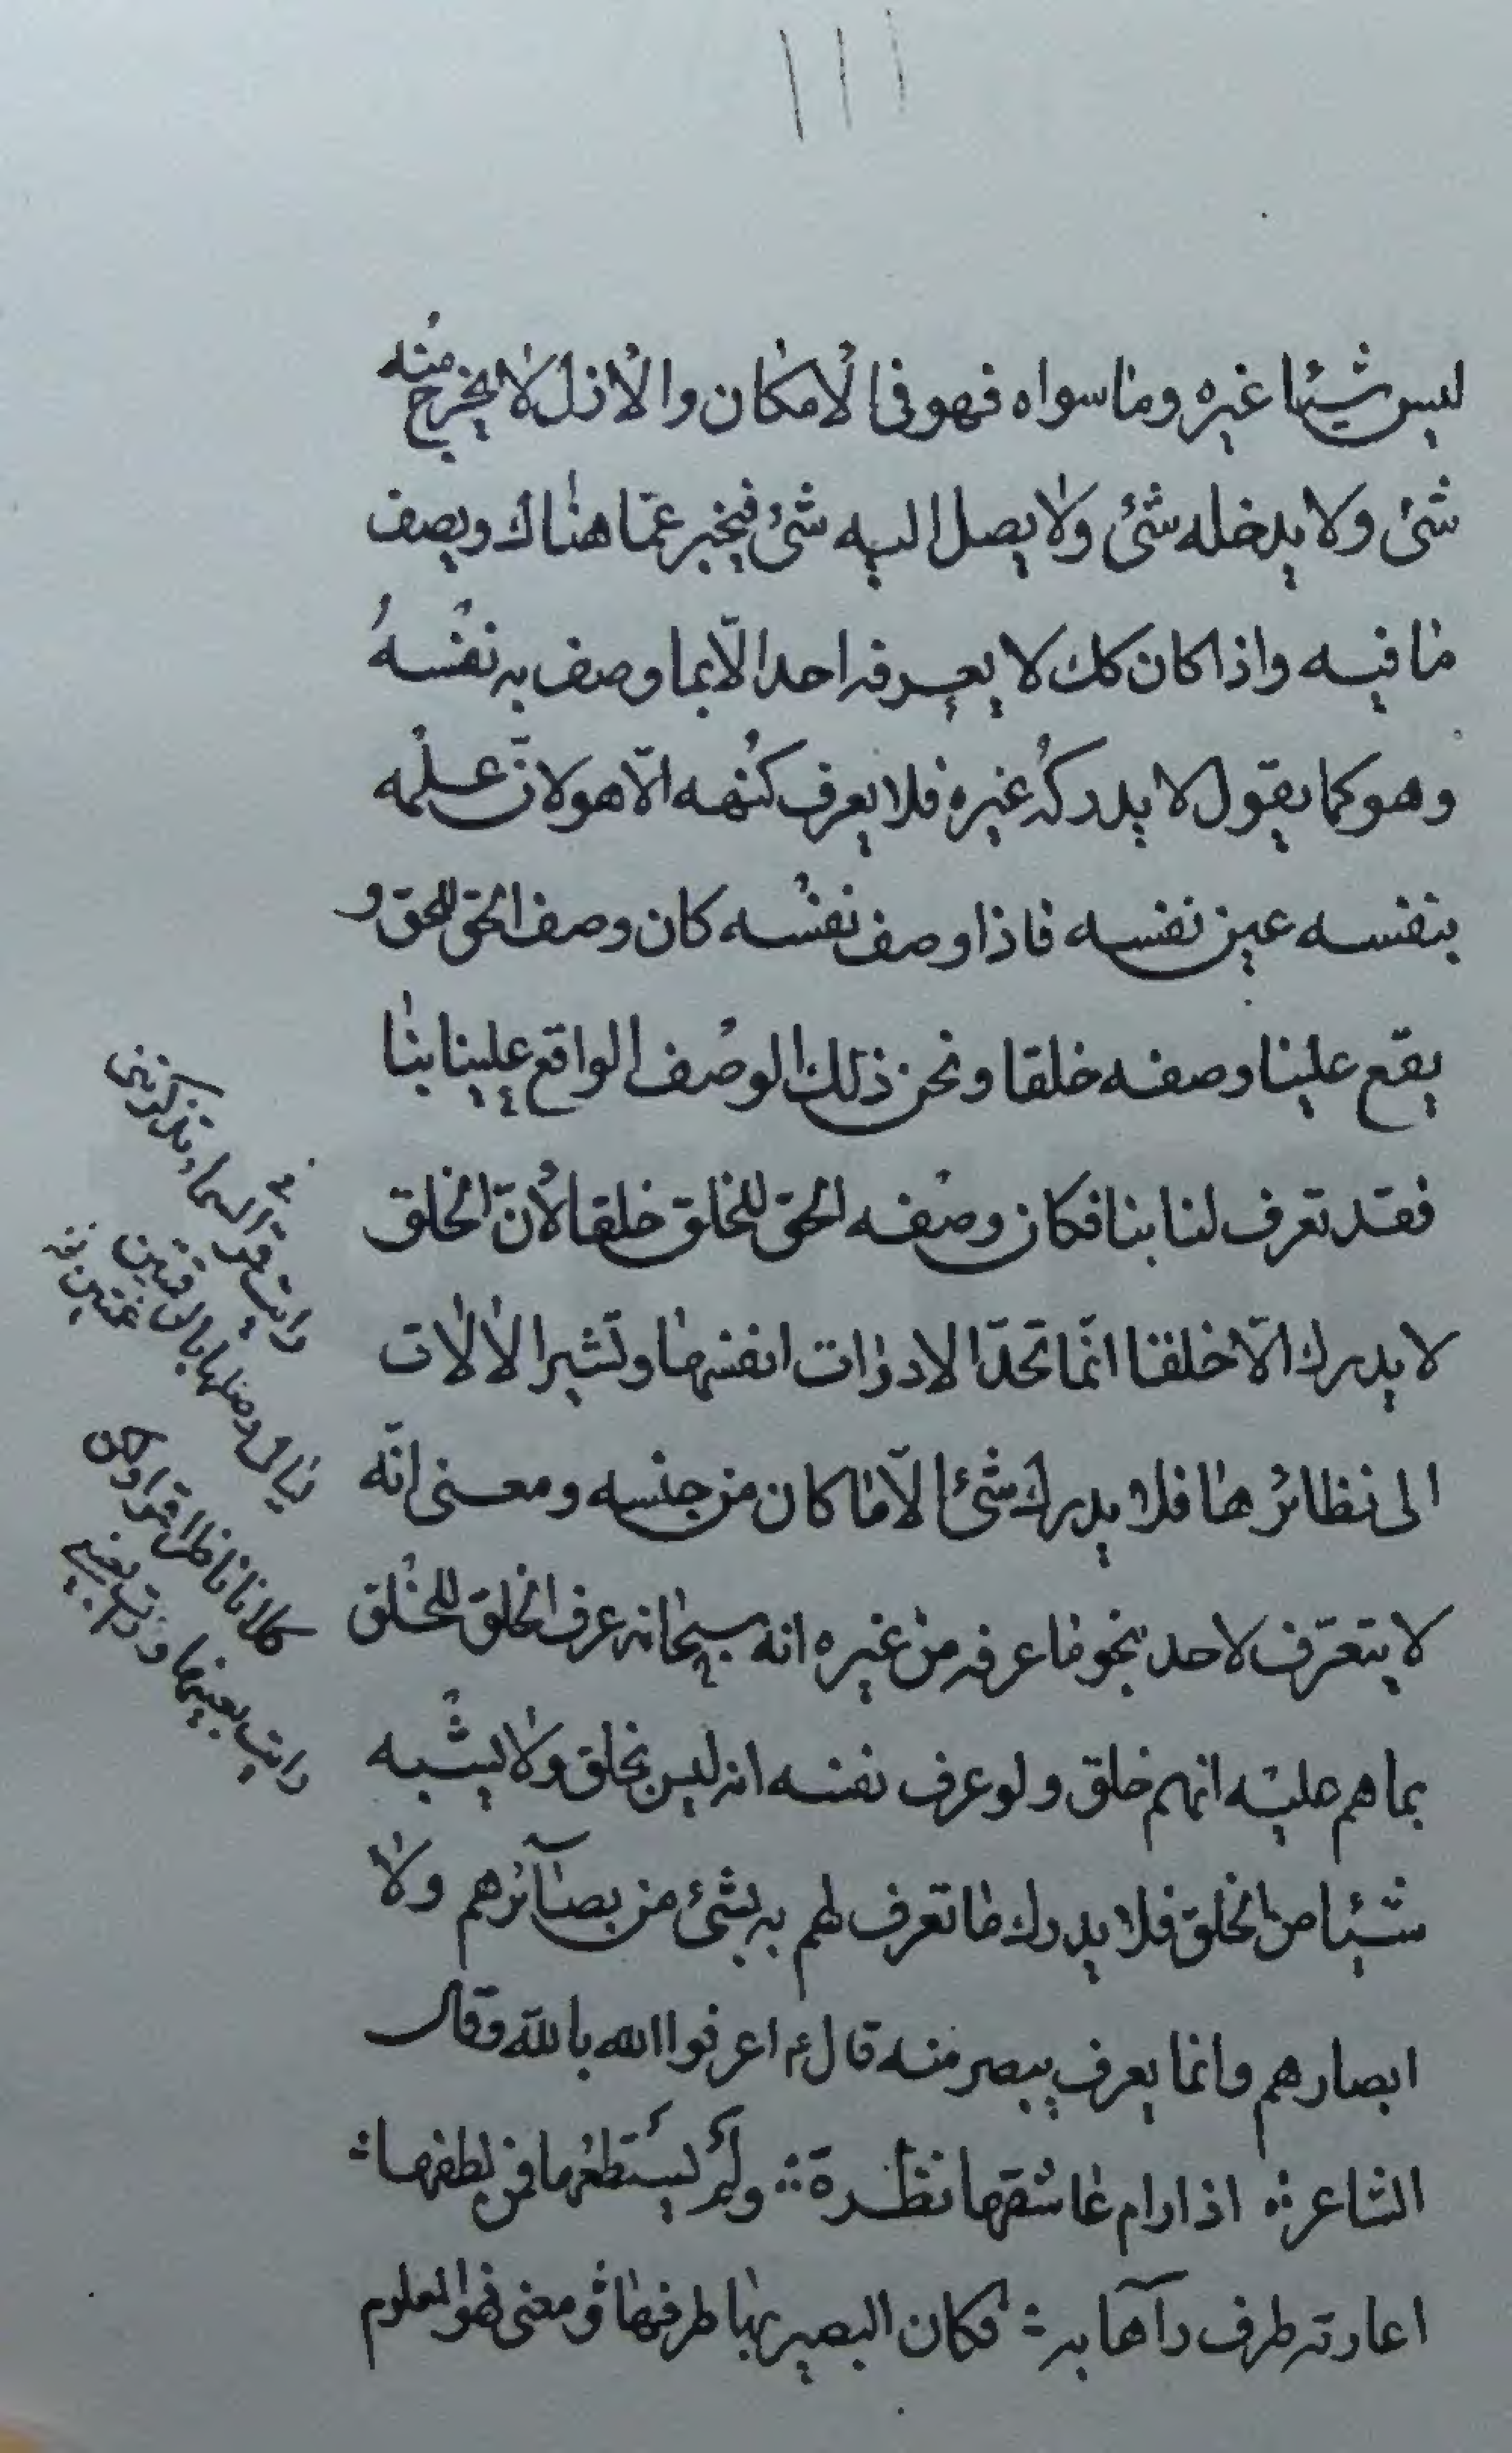 ليس شيئا غيره وما سواه فهو فى الامكان والازل لا يخرج منه
شئ ولا يدخله شئ ولا يصل اليه شئ فيخبر عما هناك ويصف
ما فيه واذا كان كك لا يعرفه احد الّا بما وصف به نفسه
وهو كما يقول لا يدركه غيره فلا يعرف كنهه الّا هو لانّ علمه
بنفسه عين نفسه فاذا وصف نفسه كان وصف الحق للحق و
يقع علينا وصفه خلقا ونحن ذلك الوصف الواقع علينا بنا
فقد تعرف لنا بنا فكان وصفه الحق للخلق خلقا لانّ الخلق
لا يدرك الّا خلقا انّما تحدّ الادوات انفسها وتشير الالات
الى نظائرها فلا يدرك شئ الّا ما كان من جنسه ومعنى انّه
لا يتعرّف لاحد بنحو ما عرفه من غيره انه سبحانه عرف الخلق للخلق
بما هم عليه انهم خلق ولو عرف نفسه انه ليس بخلق ولا يشبه
شيئا من الخلق فلا يدرك ما تعرف لهم به بشئ من بصآئرهم ولا
ابصارهم وانما يعرف ببصر منه قال ع اعرفوا الله بالله وقال
الشاعر اذا رام عاشقها نظرة ولم يستطعها فمن لطفها
اعارته طرف رآها به فكان البصير بها طرفها ومعنى فهو المعلوم
رات قمر السماء فذكرتنى
ليالى وصلها بالرقمتين
كلانا ناظر قمرا ولكن
رايت بعينها ورات بعينى